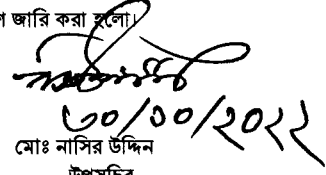 জারি করা হলো।
৩০/১০/২০২২
মোঃ নাসির উদ্দিন
উপসচিব